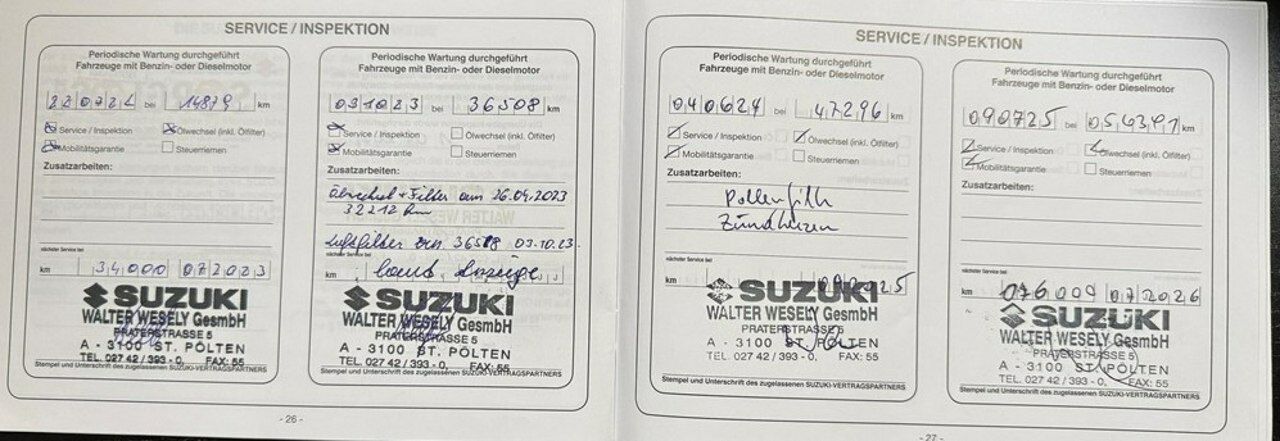 SERVICE / INSPEKTION
Periodische Wartung durchgeführt
Fahrzeuge mit Benzin- oder Dieselmotor
220722 bei 14879 km
Service / Inspektion Ölwechsel (inkl. Ölfilter)
Mobilitätsgarantie Steuerriemen
Zusatzarbeiten:
nächster Service bei
km 34000 072023
SUZUKI
WALTER WESELY GesmbH
PRATERSTRASSE 5
A - 3100 ST. PÖLTEN
TEL. 027 42 / 393 - 0, FAX: 55
Stempel und Unterschrift des zugelassenen SUZUKI-VERTRAGSPARTNERS
Periodische Wartung durchgeführt
Fahrzeuge mit Benzin- oder Dieselmotor
031023 bei 36508 km
Service / Inspektion Ölwechsel (inkl. Ölfilter)
Mobilitätsgarantie Steuerriemen
Zusatzarbeiten:
Ölwechsel + Filter am 26.04.2023
32212 km
Luftfilter 03.10.23
nächster Service bei
km laut Anzeige
SUZUKI
WALTER WESELY GesmbH
PRATERSTRASSE 5
A - 3100 ST. PÖLTEN
TEL. 027 42 / 393 - 0, FAX: 55
Stempel und Unterschrift des zugelassenen SUZUKI-VERTRAGSPARTNERS
- 26 -
SERVICE / INSPEKTION
Periodische Wartung durchgeführt
Fahrzeuge mit Benzin- oder Dieselmotor
040624 bei 47296 km
Service / Inspektion Ölwechsel (inkl. Ölfilter)
Mobilitätsgarantie Steuerriemen
Zusatzarbeiten:
Pollenfilt
Zündkerzen
nächster Service bei
km
SUZUKI
WALTER WESELY GesmbH
PRATERSTRASSE 5
A - 3100 ST. PÖLTEN
TEL. 027 42 / 393 - 0, FAX: 55
Stempel und Unterschrift des zugelassenen SUZUKI-VERTRAGSPARTNERS
Periodische Wartung durchgeführt
Fahrzeuge mit Benzin- oder Dieselmotor
090725 bei 056391 km
Service / Inspektion Ölwechsel (inkl. Ölfilter)
Mobilitätsgarantie Steuerriemen
Zusatzarbeiten:
nächster Service bei
km 076000 072026
SUZUKI
WALTER WESELY GesmbH
PRATERSTRASSE 5
A - 3100 ST. PÖLTEN
TEL. 027 42 / 393 - 0, FAX: 55
Stempel und Unterschrift des zugelassenen SUZUKI-VERTRAGSPARTNERS
- 27 -